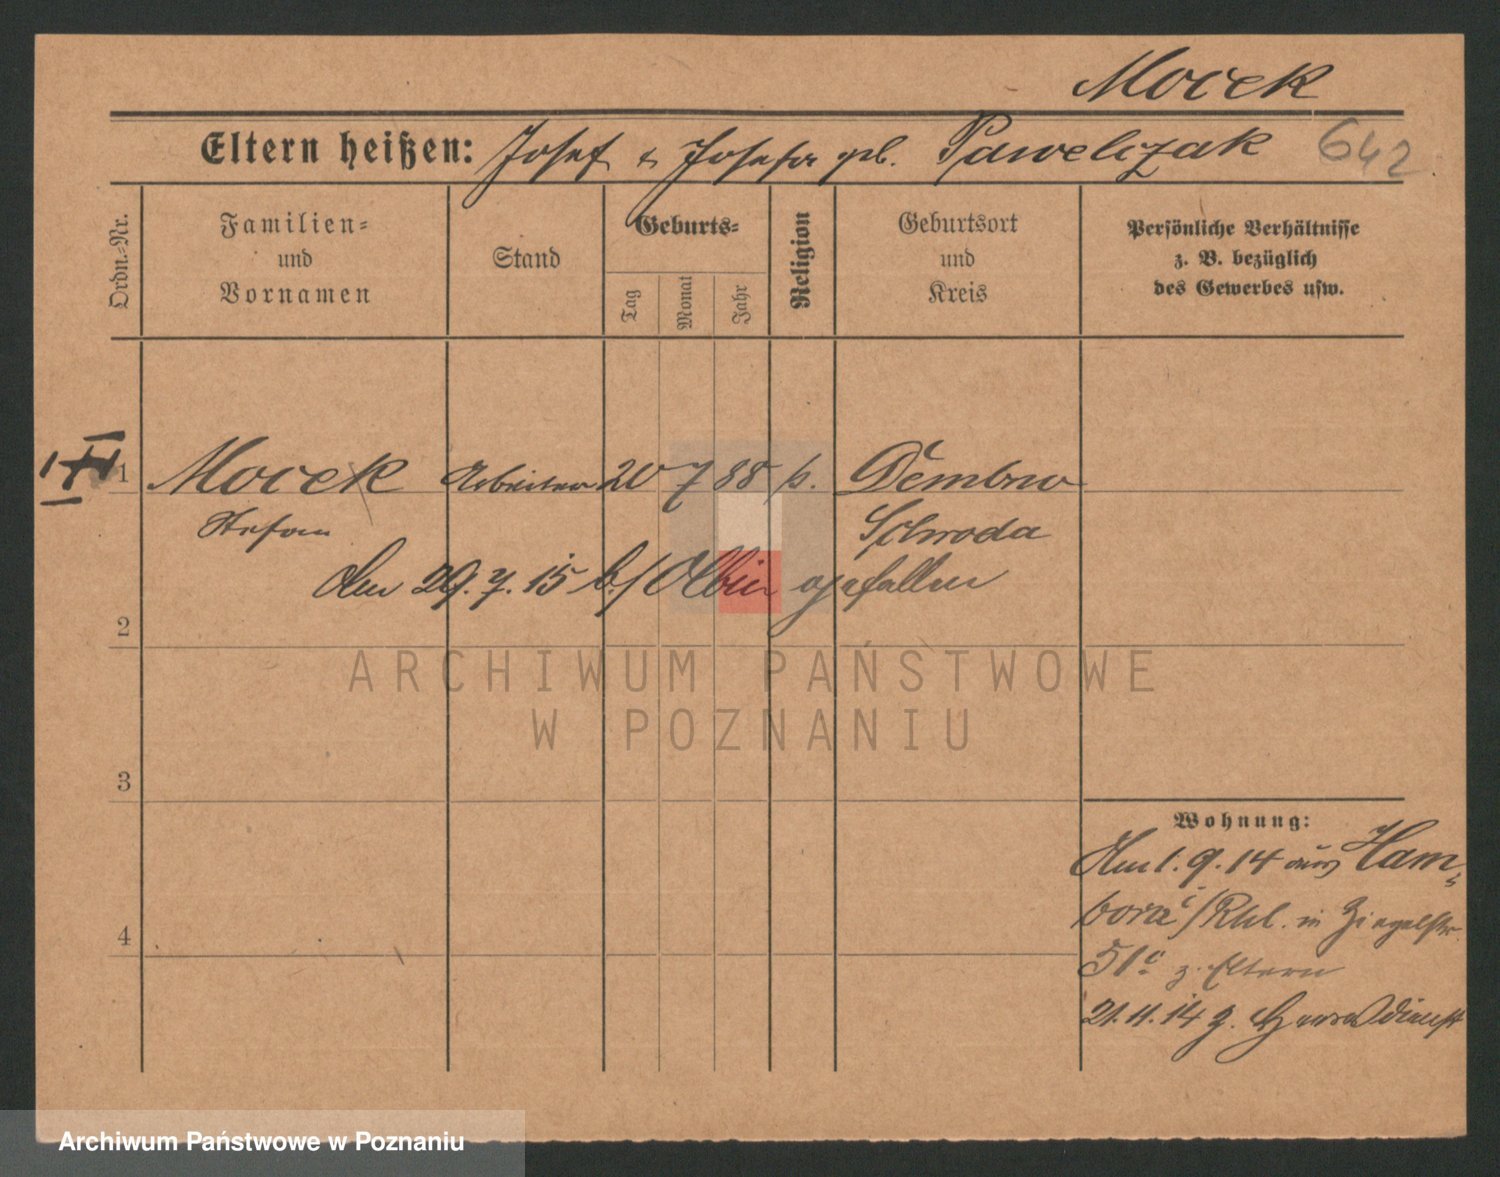 Mocek
Eltern heißen: Josef & Josefa geb. Pawelczak 642
Ordn.=Nr.
Familien=
und
Vornamen
Stand
Geburts=
Tag
Monat
Jahr
Religion
Geburtsort
und
Kreis
Persönliche Verhältnisse
z. B. bezüglich
des Gewerbes usw.
1 Mocek Arbeiter 20 7 88 k. Dembno
Stefan Schroda
Am 29.7.15 b./ gefallen
2
ARCHIWUM PAŃSTWOWE
W POZNANIU
3
Wohnung:
Am 1.9.14 aus Ham=
born /Rhl. in Ziegelstr.
4
51c z. Eltern
21.11.14 z. Heeresdienst
Archiwum Państwowe w Poznaniu